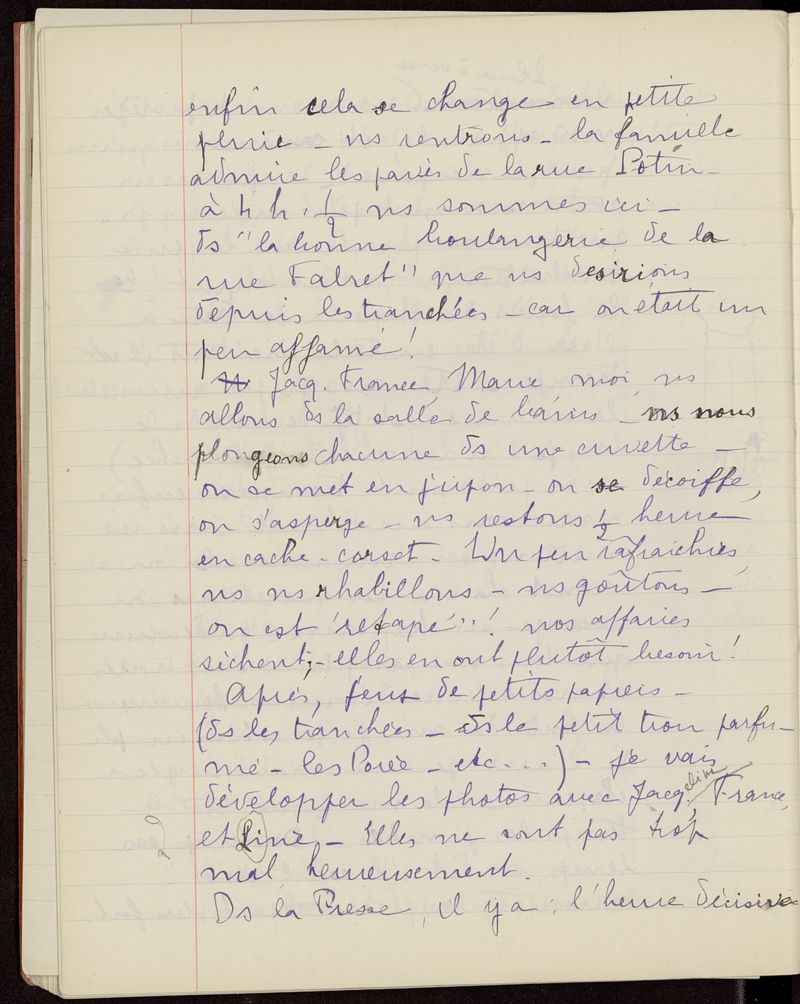 enfin cela se change en petite
pluie - ns rentrons - la famille
admire les pavés de la rue Potin -
à 4 h. 1/2 ns sommes ici -
ds "la bonne boulangerie de la
rue Falret" que ns desirions
depuis les tranchées - car on était un
peu affamé!
Jacq. France, Marie, moi, ns
allons ds la salle de bains - ns nous
plongeons chacune ds une cuvette -
on se met en jupon - on se décoiffe,
on s'asperge - ns restons 1/2 heure
en cache-corset. Un peu rafraichies,
ns ns rhabillons - ns goûtons -
on est "retapé"! nos affaires
sèchent; - elles en ont plutôt besoin!
Après, jeux de petits papiers -
(ds les tranchées - ds le petit trou parfu-
mé - les Porée - etc...) - je vais
développer les photos avec Jacqueline, France,
et Line - Elles ne sont pas trop
mal heureusement.
Ds la Presse, il y a: l'heure décisive